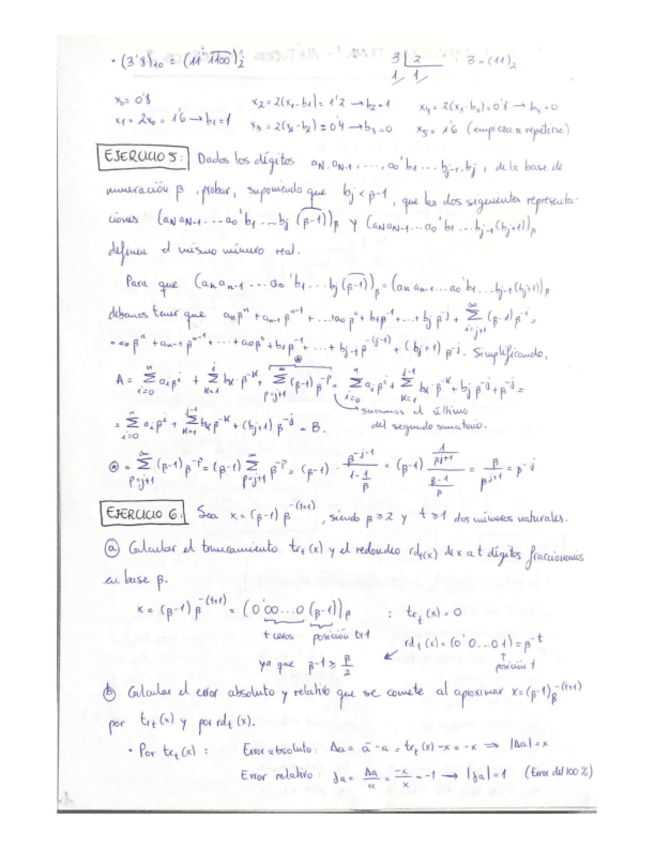 • (3'8)₁₀ = (11'1100)₂   3 |2   3 = (11)₂
1   1
x₀ = 0'8   x₂ = 2(x₁-b₁) = 1'2 → b₂ = 1   x₄ = 2(x₃-b₃) = 0'8 → b₄ = 0
x₁ = 2x₀ = 1'6 → b₁ = 1   x₃ = 2(x₂-b₂) = 0'4 → b₃ = 0   x₅ = 1'6 (empieza a repetirse)
EJERCICIO 5: Dados los dígitos a_N, a_{N-1}, ..., a₀'b₁ ... b_{j-1}, b_j, de la base de
numeración β, probar, suponiendo que b_j < β-1, que las dos siguientes representa-
ciones (a_N a_{N-1} ... a₀'b₁ ... b_j (β-1))_β y (a_N a_{N-1} ... a₀'b₁ ... b_{j-1} (b_j+1))_β
definen el mismo número real.
Para que (a_n a_{n-1} ... a₀'b₁ ... b_j (β-1))_β = (a_n a_{n-1} ... a₀'b₁ ... b_{j-1} (b_j+1))_β
debemos tener que a_nβⁿ + a_{n-1}βⁿ⁻¹ + ... + a₀β⁰ + b₁β⁻¹ + ... + b_jβ⁻ʲ + Σ_{i=j+1}^∞ (β-1)β⁻ⁱ =
= a_nβⁿ + a_{n-1}βⁿ⁻¹ + ... + a₀β⁰ + b₁β⁻¹ + ... + b_{j-1}β^{-(j-1)} + (b_j+1)β⁻ʲ. Simplificando,
⊛
A = Σ_{i=0}^n a_iβⁱ + Σ_{k=1}^j b_kβ⁻ᵏ + Σ_{p=j+1}^∞ (β-1)β⁻ᵖ = Σ_{i=0}^n a_iβⁱ + Σ_{k=1}^{j-1} b_kβ⁻ᵏ + b_jβ⁻ʲ + β⁻ʲ =
sacamos el último
= Σ_{i=0}^n a_iβⁱ + Σ_{k=1}^{j-1} b_kβ⁻ᵏ + (b_j+1)β⁻ʲ = B.   del segundo sumatorio.
⊛ = Σ_{p=j+1}^∞ (β-1)β⁻ᵖ = (β-1) Σ_{p=j+1}^∞ β⁻ᵖ = (β-1) · β^{-j-1}/(1-1/β) = (β-1) (1/β^{j+1})/((β-1)/β) = β/β^{j+1} = β⁻ʲ
EJERCICIO 6: Sea x = (β-1)β^{-(t+1)}, siendo β ≥ 2 y t ≥ 1 dos números naturales.
ⓐ Calcular el truncamiento tr_t(x) y el redondeo rd_t(x) de x a t dígitos fraccionarios
en base β.
x = (β-1)β^{-(t+1)} = (0'00...0 (β-1))_β   : tr_t(x) = 0
t ceros   posición t+1   rd_t(x) = (0'0...01) = β⁻ᵗ
ya que β-1 ≥ β/2   posición t
ⓑ Calcular el error absoluto y relativo que se comete al aproximar x = (β-1)β^{-(t+1)}
por tr_t(x) y por rd_t(x).
• Por tr_t(x) :   Error absoluto: Δa = ā - a = tr_t(x) - x = -x ⇒ |Δa| = x
Error relativo: δa = Δa/a = -x/x = -1 → |δa| = 1   (Error del 100 %)